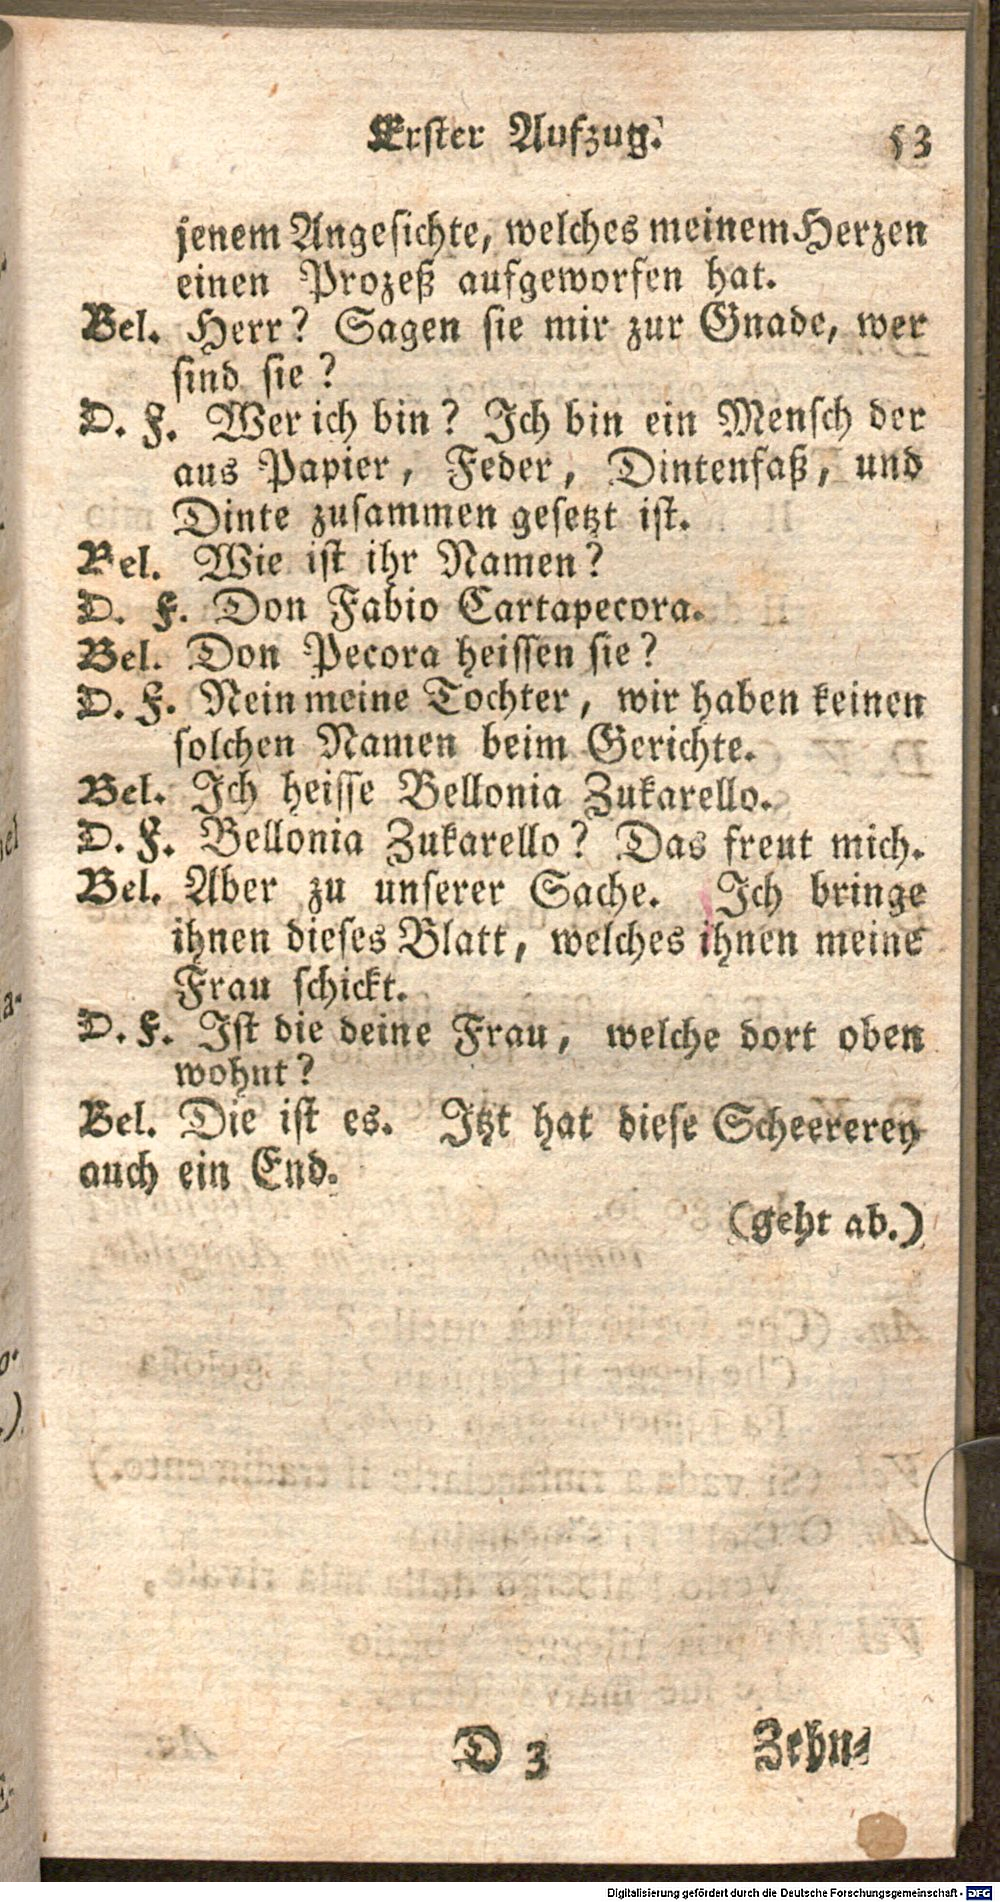 Erster Aufzug. 53
jenem Angesichte, welches meinem Herzen
einen Prozeß aufgeworfen hat.
Bel. Herr? Sagen sie mir zur Gnade, wer
sind sie?
D. F. Wer ich bin? Ich bin ein Mensch der
aus Papier, Feder, Dintenfaß, und
Dinte zusammen gesetzt ist.
Bel. Wie ist ihr Namen?
D. F. Don Fabio Cartapecora.
Bel. Don Pecora heissen sie?
D. F. Nein meine Tochter, wir haben keinen
solchen Namen beim Gerichte.
Bel. Ich heisse Bellonia Zukarello.
D. F. Bellonia Zukarello? Das freut mich.
Bel. Aber zu unserer Sache. Ich bringe
ihnen dieses Blatt, welches ihnen meine
Frau schickt.
D. F. Ist die deine Frau, welche dort oben
wohnt?
Bel. Die ist es. Itzt hat diese Scheererey
auch ein End.
(geht ab.)
D 3 Zehn-
Digitalisierung gefördert durch die Deutsche Forschungsgemeinschaft - DFG